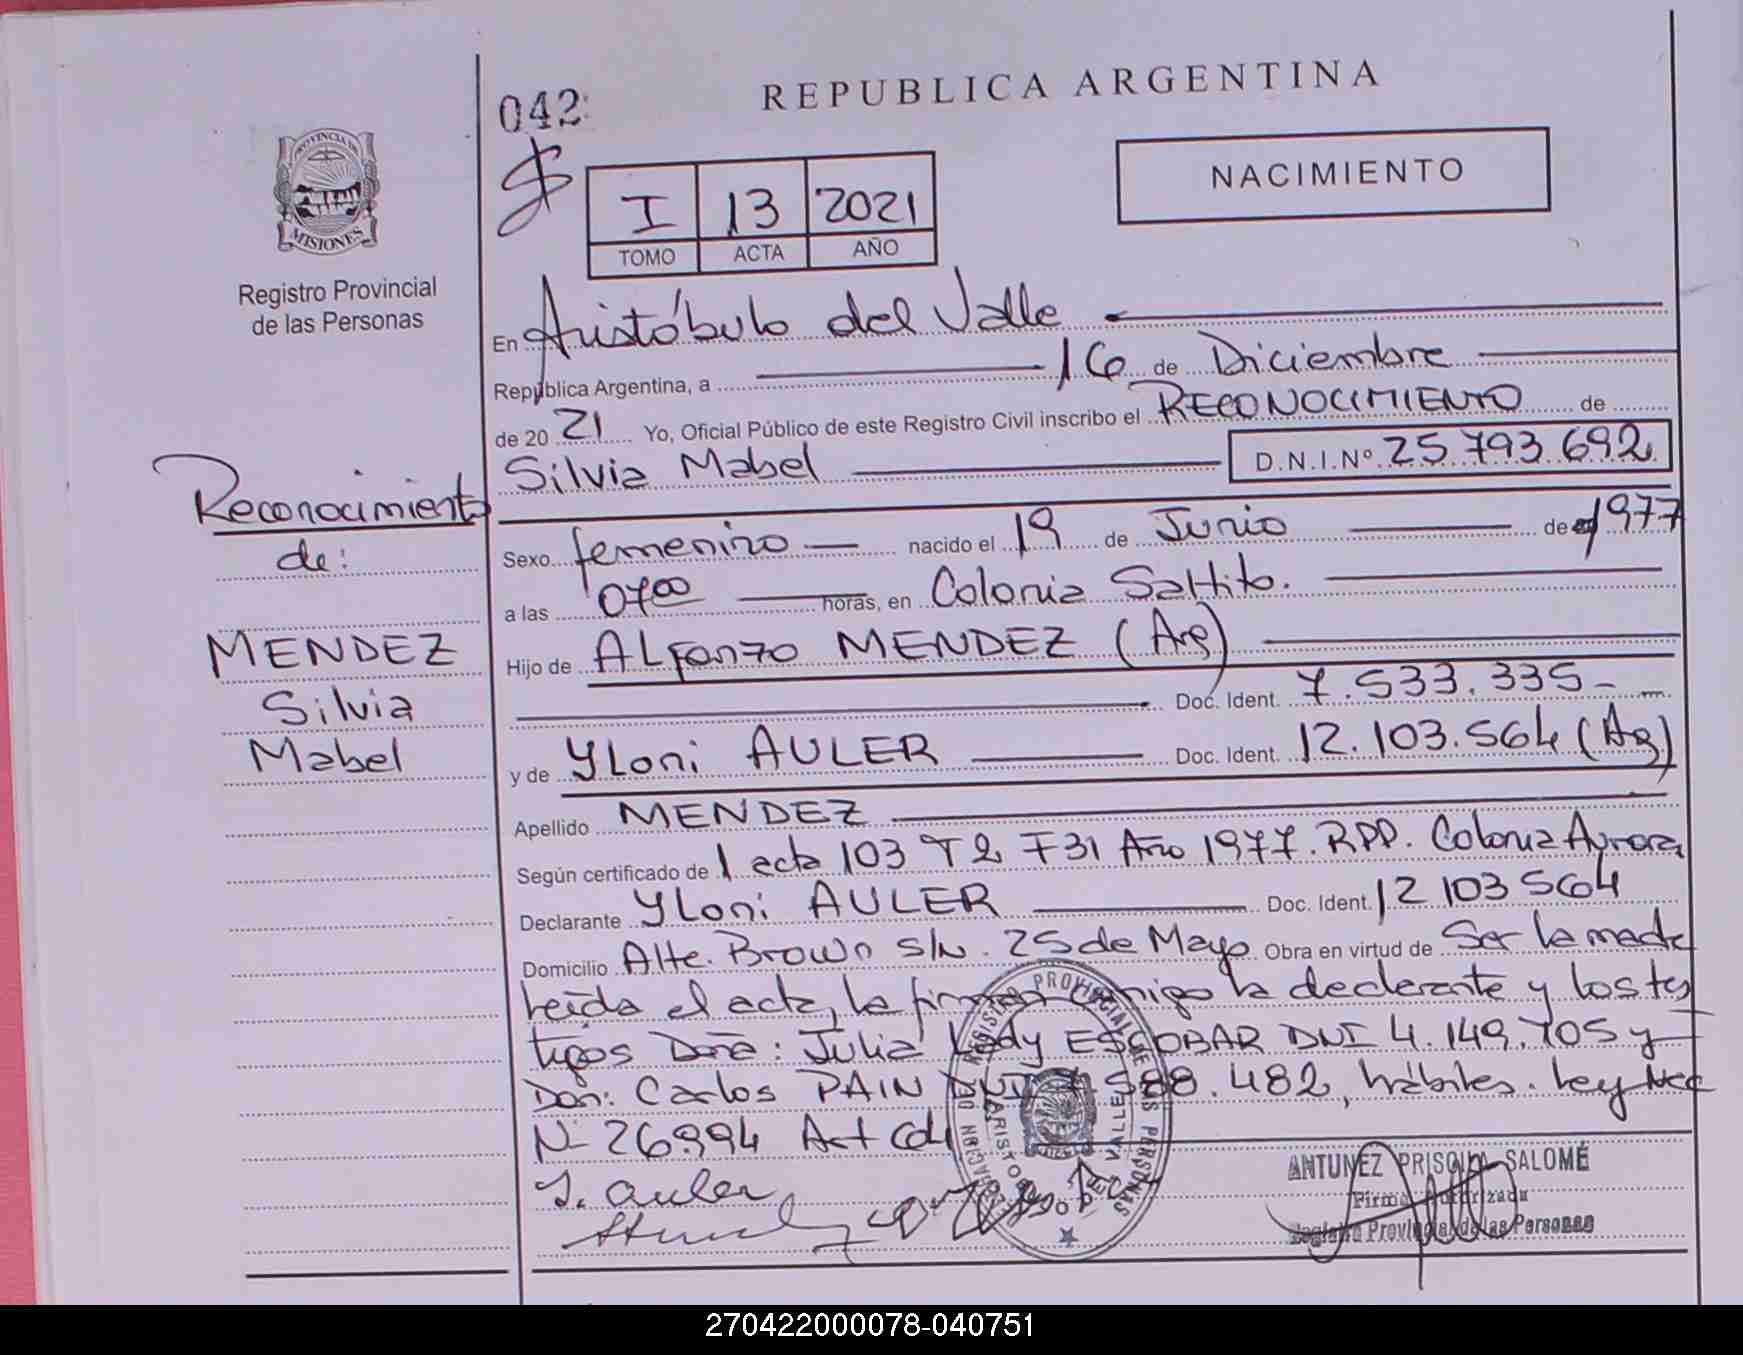 042
REPUBLICA ARGENTINA
NACIMIENTO
I 13 2021
TOMO ACTA AÑO
PROVINCIA DE
MISIONES
Registro Provincial
de las Personas
En Aristóbulo del Valle
República Argentina, a 16 de Diciembre
de 20 21 Yo, Oficial Público de este Registro Civil inscribo el RECONOCIMIENTO de
Silvia Mabel D.N.I.Nº 25 793 692
Reconocimiento
de:
MENDEZ
Silvia
Mabel
Sexo femenino nacido el 19 de Junio de 1977
a las 0700 horas, en Colonia Saltito.
Hijo de ALfonzo MENDEZ (Arg)
Doc. Ident. 7.533.335-
y de YLoni AULER Doc. Ident. 12.103.564 (Ag)
Apellido MENDEZ
Según certificado de 1 acta 103 T 2 F31 Año 1977. RPP. Colonia Aurora
Declarante YLoni AULER Doc. Ident. 12 103 564
Domicilio Alte. Brown s/N. 25 de Mayo Obra en virtud de Ser la madre
Leída el acta, la firman conmigo la declarante y los tes
tigos Doña: Julia Lady ESCOBAR DNI 4.149.705 y
Don: Carlos PAIN DNI 588.482, hábiles. Ley Nac
Nº 26.994 Art
Y. auler
ANTUNEZ PRISCILA SALOMÉ
Firma Autorizada
Registro Provincial de las Personas
270422000078-040751